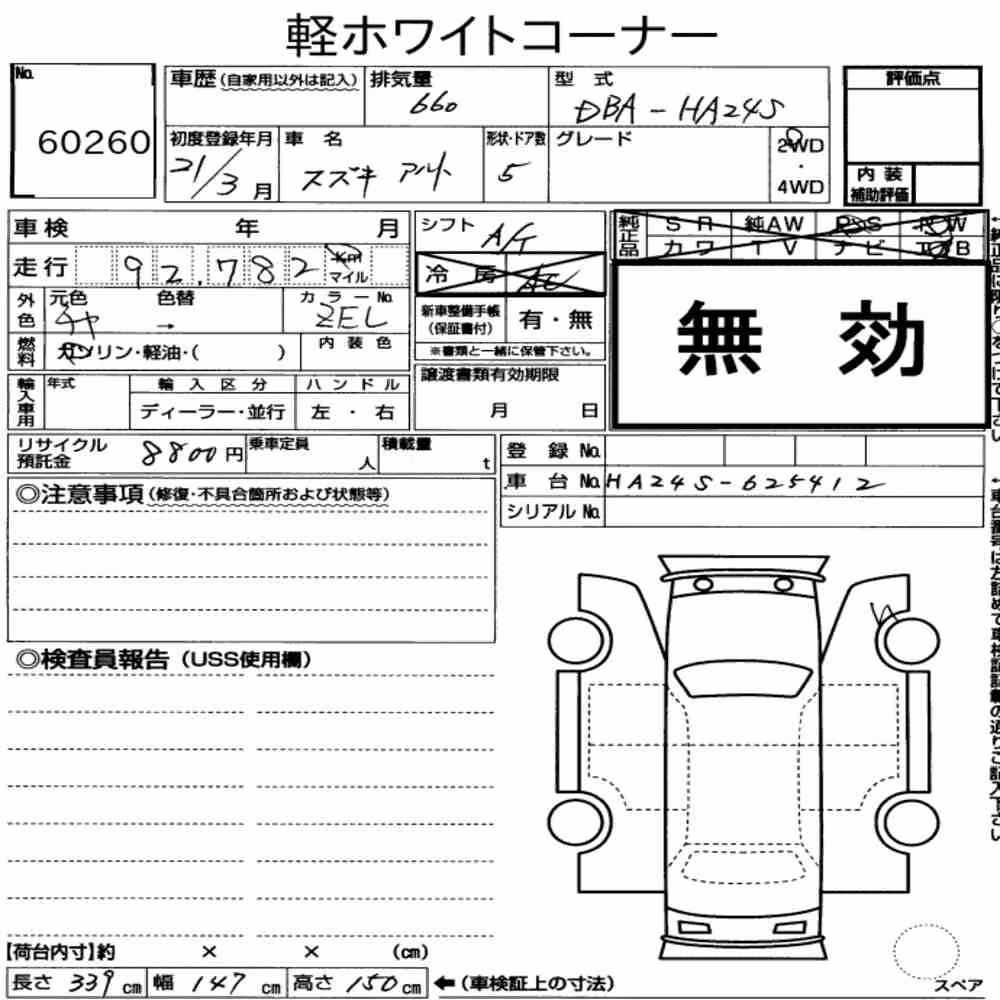 軽ホワイトコーナー
No. 60260
車歴 (自家用以外は記入)
排気量 660
型式 DBA-HA24S
評価点
初度登録年月 21/3月
車名 スズキ アルト
形状・ドア数 5
グレード
2WD
・
4WD
内装
補助評価
車検 年 月
走行 92,782 Km
マイル
外色 元色 色替 →
カラーNo. ZEL
燃料 ガソリン・軽油・( )
内装色
輸入車用 年式 輸入区分 ハンドル
ディーラー・並行 左・右
シフト A/T
冷房 AC
新車整備手帳
(保証書付) 有・無
※書類と一緒に保管下さい。
譲渡書類有効期限
月 日
純正品 SR 純AW PS PW
カワ TV ナビ
無効
リサイクル
預託金 8800円
乗車定員 人
積載量 t
登録No.
車台No. HA24S-625412
シリアルNo.
◎注意事項 (修復・不具合箇所および状態等)
◎検査員報告 (USS使用欄)
【荷台内寸】約 × × (cm)
長さ 339 cm 幅 147 cm 高さ 150 cm ←(車検証上の寸法)
スペア